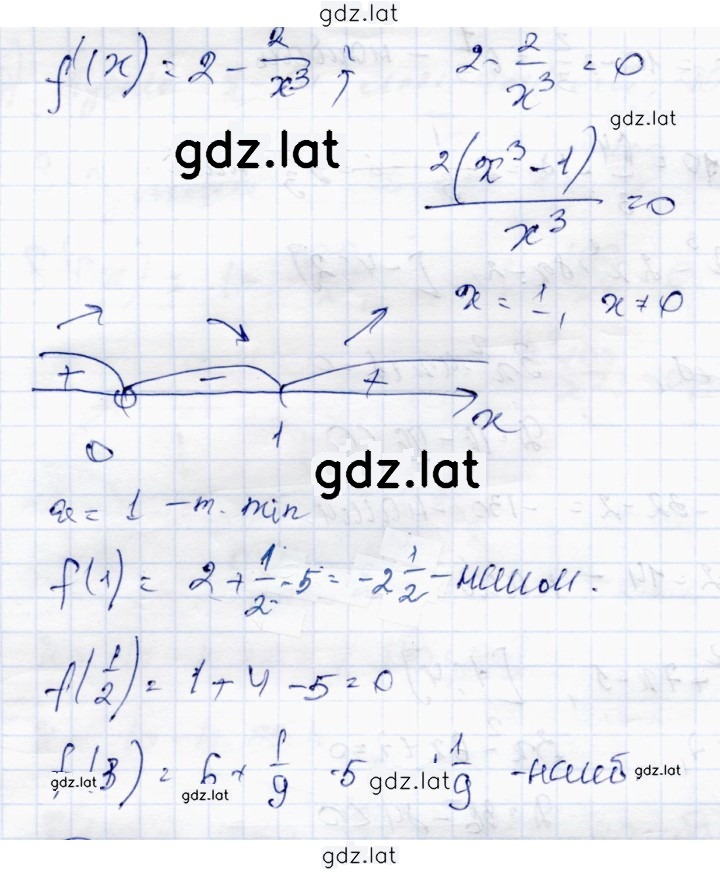 gdz.lat
f'(x) = 2 - 2/x³ ; 2 - 2/x³ = 0
gdz.lat
gdz.lat
2(x³ - 1)/x³ = 0
x = 1, x ≠ 0
+ - + x
0 1
gdz.lat
x = 1 - т. min
f(1) = 2 + 1/2 - 5 = -2 1/2 - наим.
f(1/2) = 1 + 4 - 5 = 0
f(3) = 6 + 1/9 - 5 1 1/9 - наиб
gdz.lat gdz.lat gdz.lat gdz.lat
gdz.lat